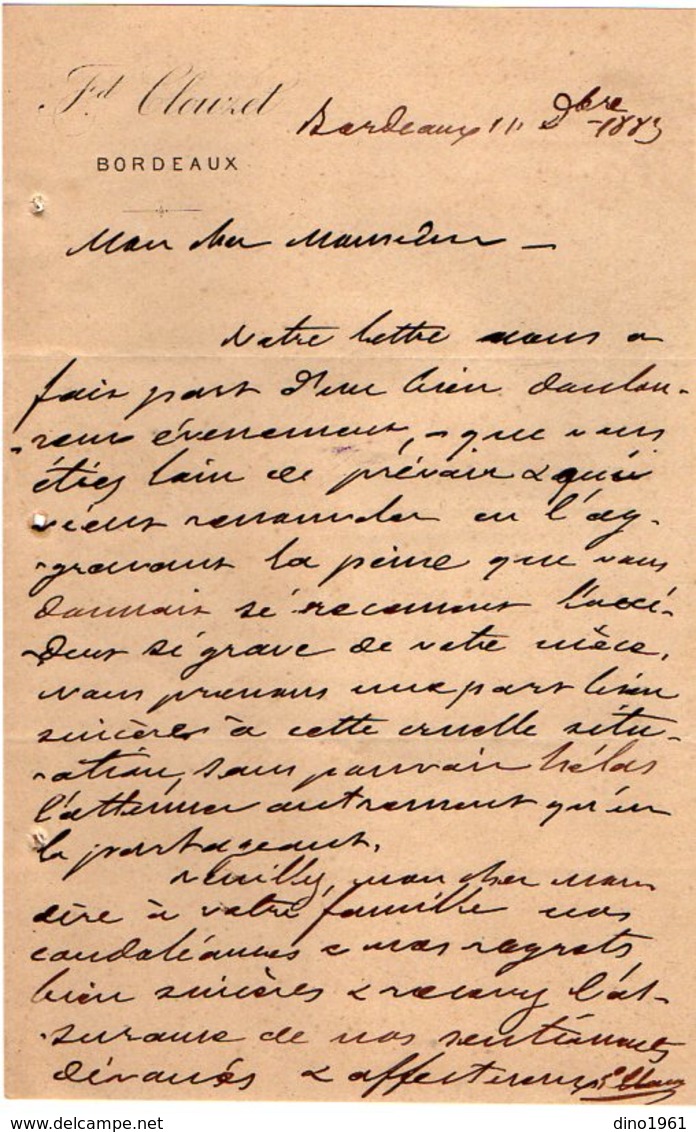 Fd Clouzet
BORDEAUX
Bordeaux 11 Dbre 1883
Mon cher Monsieur _
Votre lettre nous a
fait part d'un bien doulou-
-reux évènement, que vous
étiez loin de prévoir & qui
vient renouveler en l'ag-
-gravant la peine que vous
donnait si récemment l'acci-
-dent si grave de votre nièce.
Nous prenons une part bien
sincère à cette cruelle situ-
-ation, sans pouvoir hélas
l'atténuer autrement qu'en
la partageant.
Veuillez, mon cher Mon
dire à votre famille nos
condoléances & nos regrets
bien sincères & recevez l'as-
-surance de nos sentiments
dévoués & affectueux
dino1961